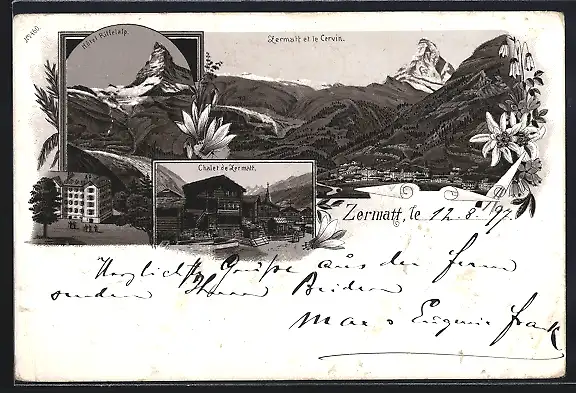 No 1460
Hôtel Riffelalp.
Zermatt et le Cervin.
Chalet de Zermatt.
Zermatt, le 12.8. 97.
Herzlichste Grüße aus der Ferne
senden Ihnen Beiden
Max & Eugenie Frank